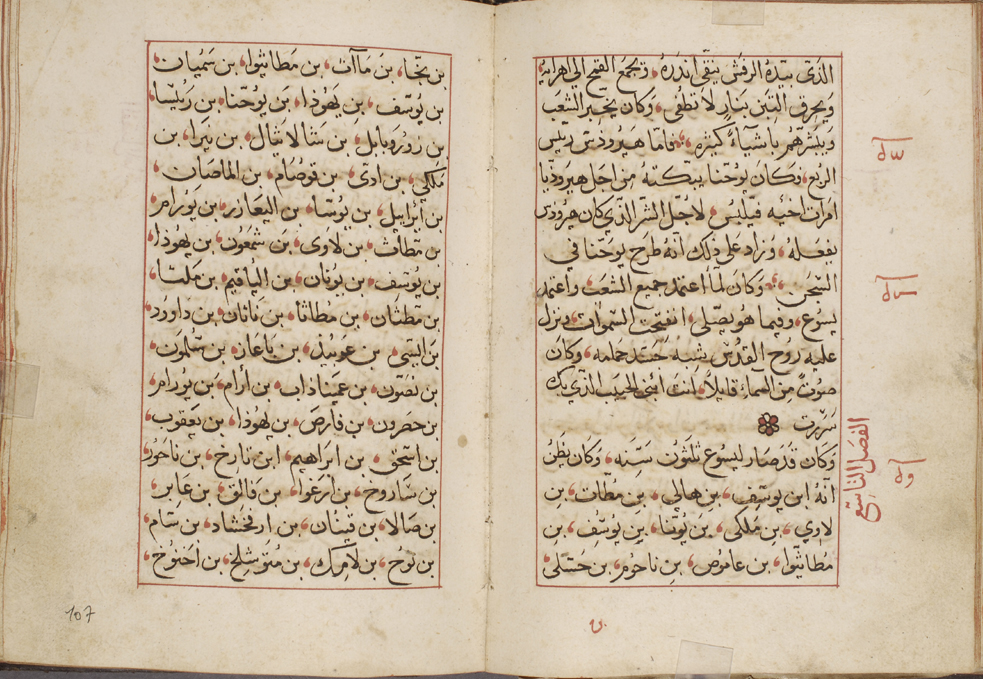 الذي بيده الرفش ينقي اندره، ويجمع القمح الي اهرايه
ويحرق التبن بنار لا تطفي، وكان يخبر الشعب
ويبشرهم باشيآء كثيره، فاما هيرودس رييس
الربع، وكان يوحنا يبكته من اجل هيروديا
امراة اخيه فيلبس، لاجل الشر الذي كان هيرودس
يفعله، وزاد علي ذلك انه طرح يوحنا في
السجن، وكان لما اعتمد جميع الشعب واعتمد
يسوع، وفيما هو يصلي، انفتحت السموات ونزل
عليه روح القدس، شبه جسد حمامه، وكان
صوت من السماء قايلا، انت ابني الحبيب الذي بك
سررت
وكان قد صار ليسوع ثلثون سنه، وكان يظن
انه ابن يوسف، بن هالي، بن مطات، بن
لاوي، بن ملكي، بن يونا، بن يوسف، بن
مطاثيوا، بن عاموص، بن ناحوم، بن حسلي
الفصل التاسع
بن نجا، بن ماآت، بن مطاثيوا، بن سميان
بن يوسف، بن يهوذا، بن يوحنا، بن ريسا
بن زوروبابل، بن شالاثيال، بن نيرا، بن
ملكي، بن ادي، بن قوصام، بن الماصان
بن ايرابيل، بن يوسا، بن اليعازر، بن يورام
بن مطاث، بن لاوي، بن شمعون، بن يهوذا
بن يوسف، بن يونان، بن الياقيم، بن مليتا
بن مطثان، بن مطاثا، بن ناثان، بن داوود
بن اليسي، بن عوبيذ، بن باعاز، بن سلمون
بن نصون، بن عميناذاب، بن ارام، بن يورام
بن حصرون، بن فارص، بن يهوذا، بن يعقوب
بن اسحق، بن ابراهيم، ابن تارخ، بن ناحور
بن ساروخ، بن ارعوا، بن فالق، بن عابر
بن صالا، بن قينان، بن ارفخشاد، بن سام
بن نوح، بن لامك، بن متوشلخ، بن اخنوخ
107